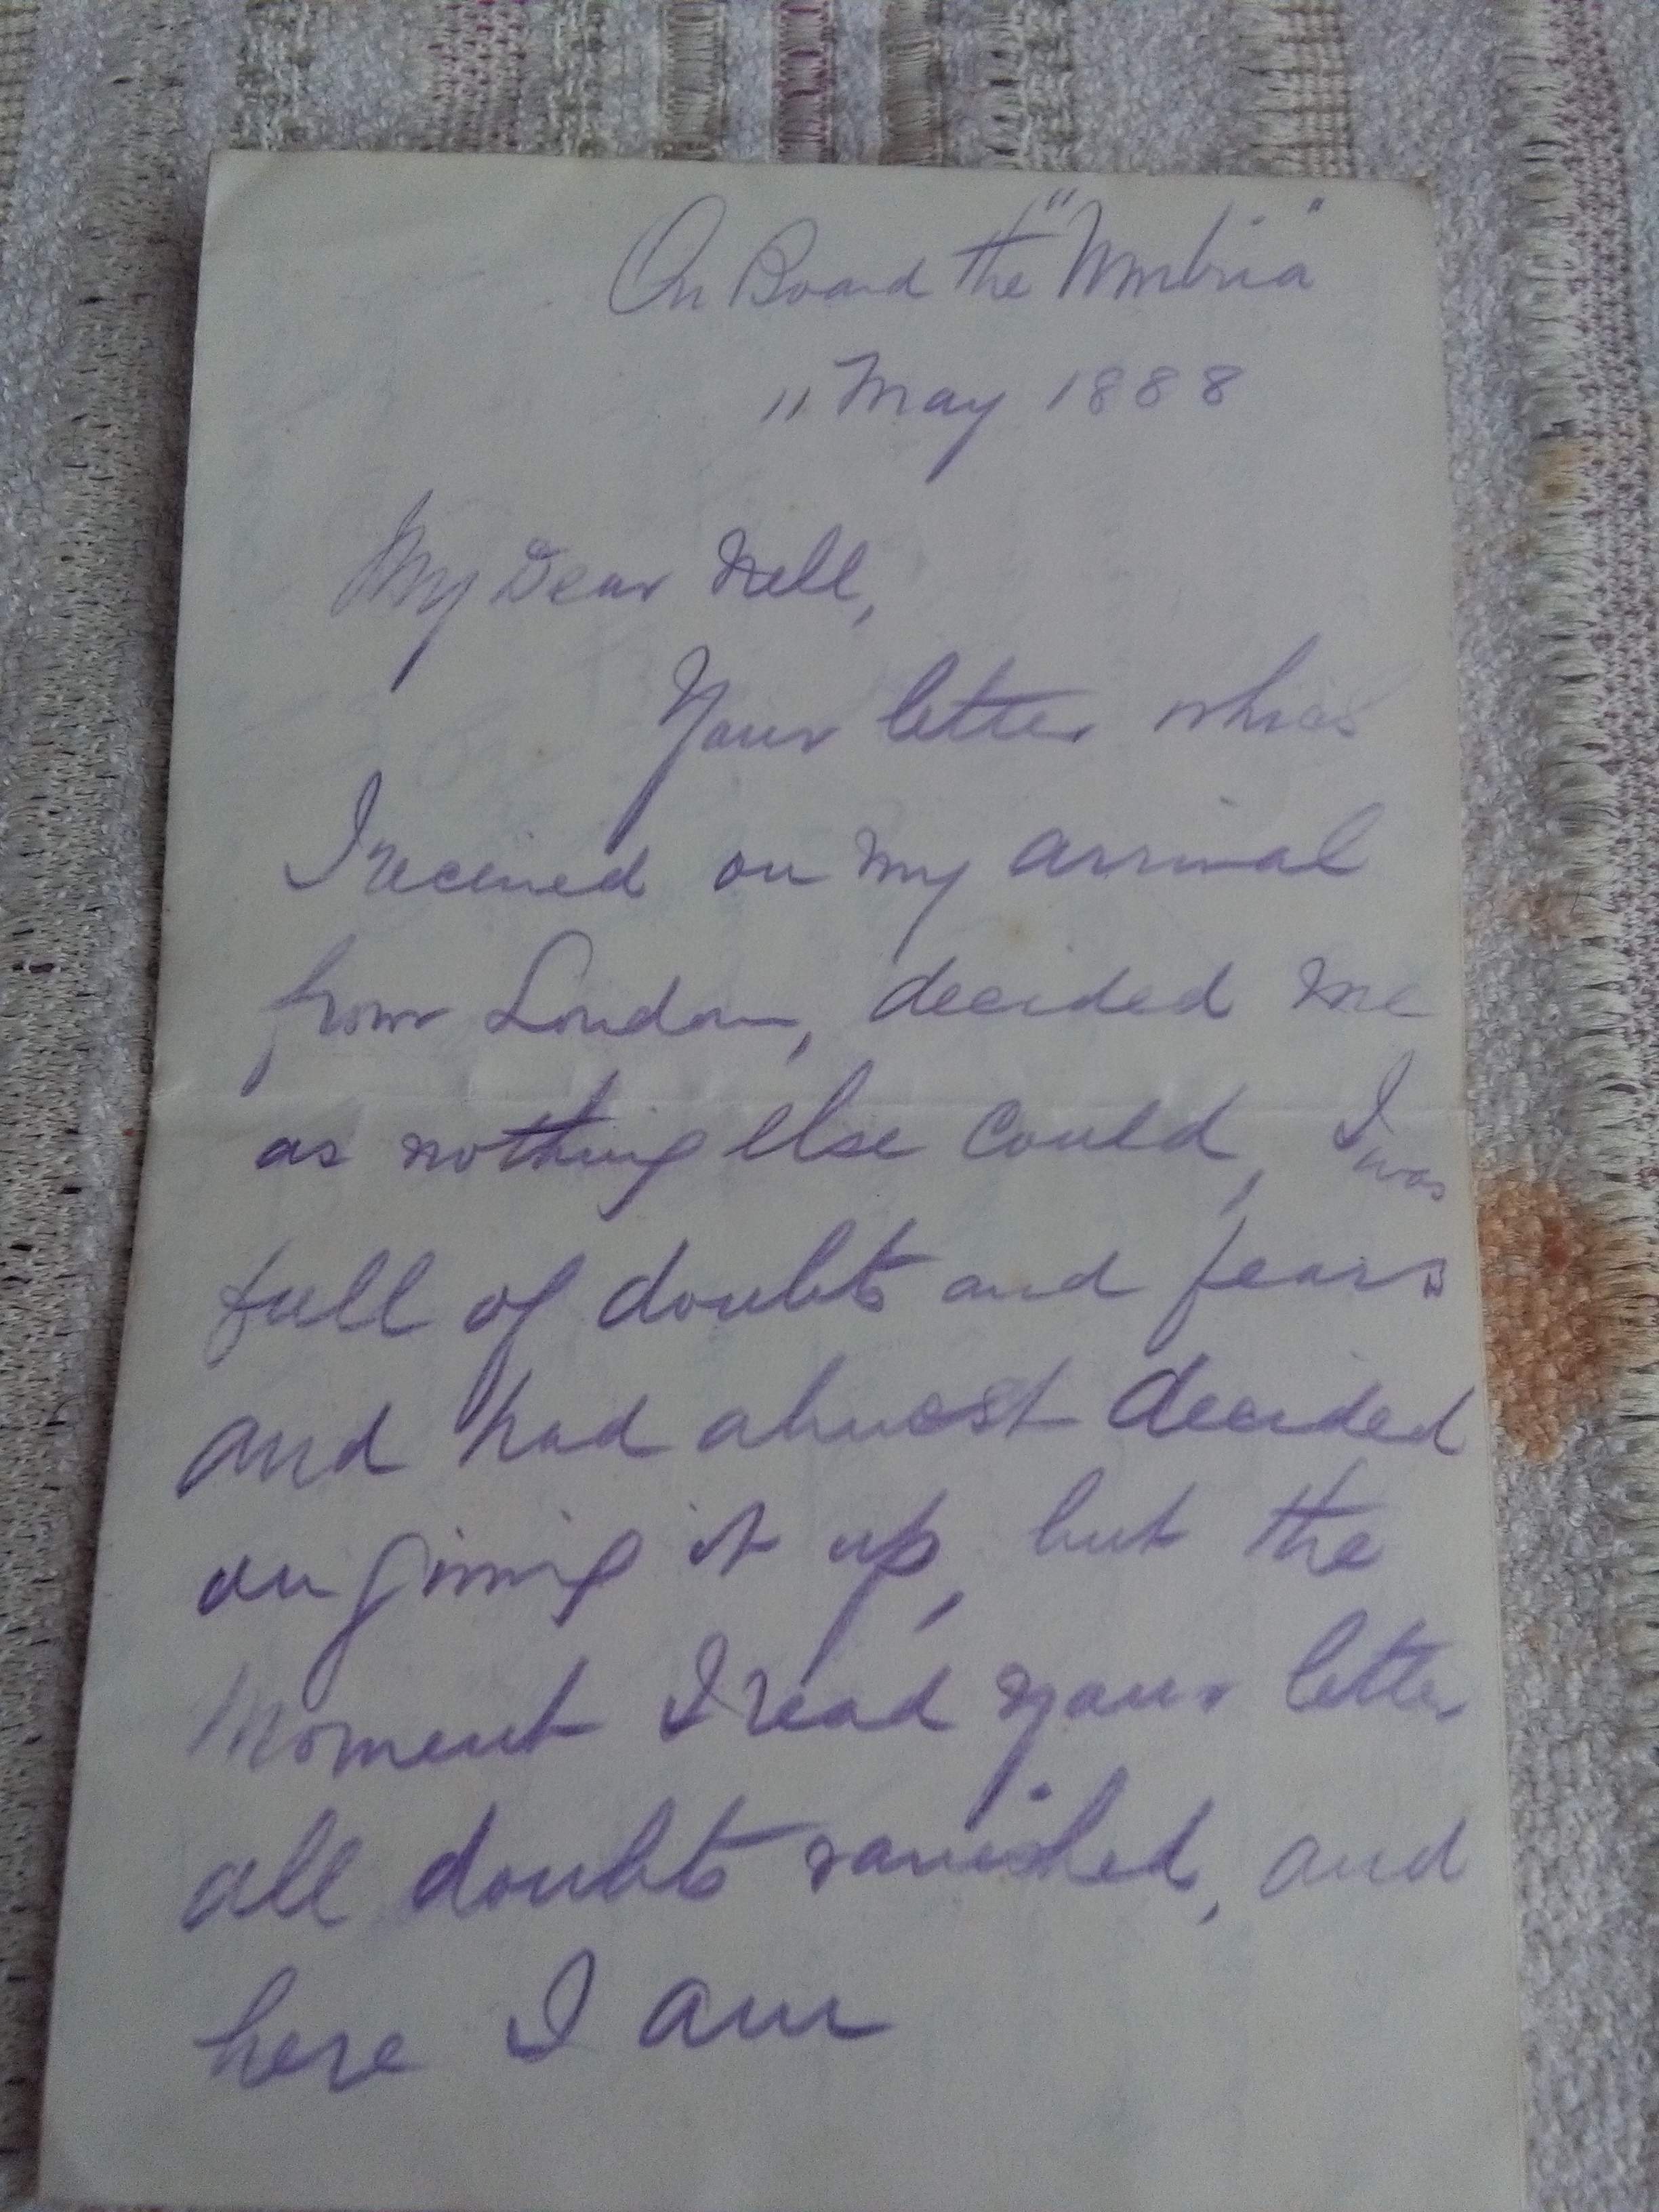 On Board the "Umbria"
11 May 1888
My Dear Nell,
Your letter which
I received on my arrival
from London, decided me
as nothing else could, I was
full of doubts and fears
and had almost decided
on giving it up, but the
moment I read your letter
all doubts vanished, and
here I am